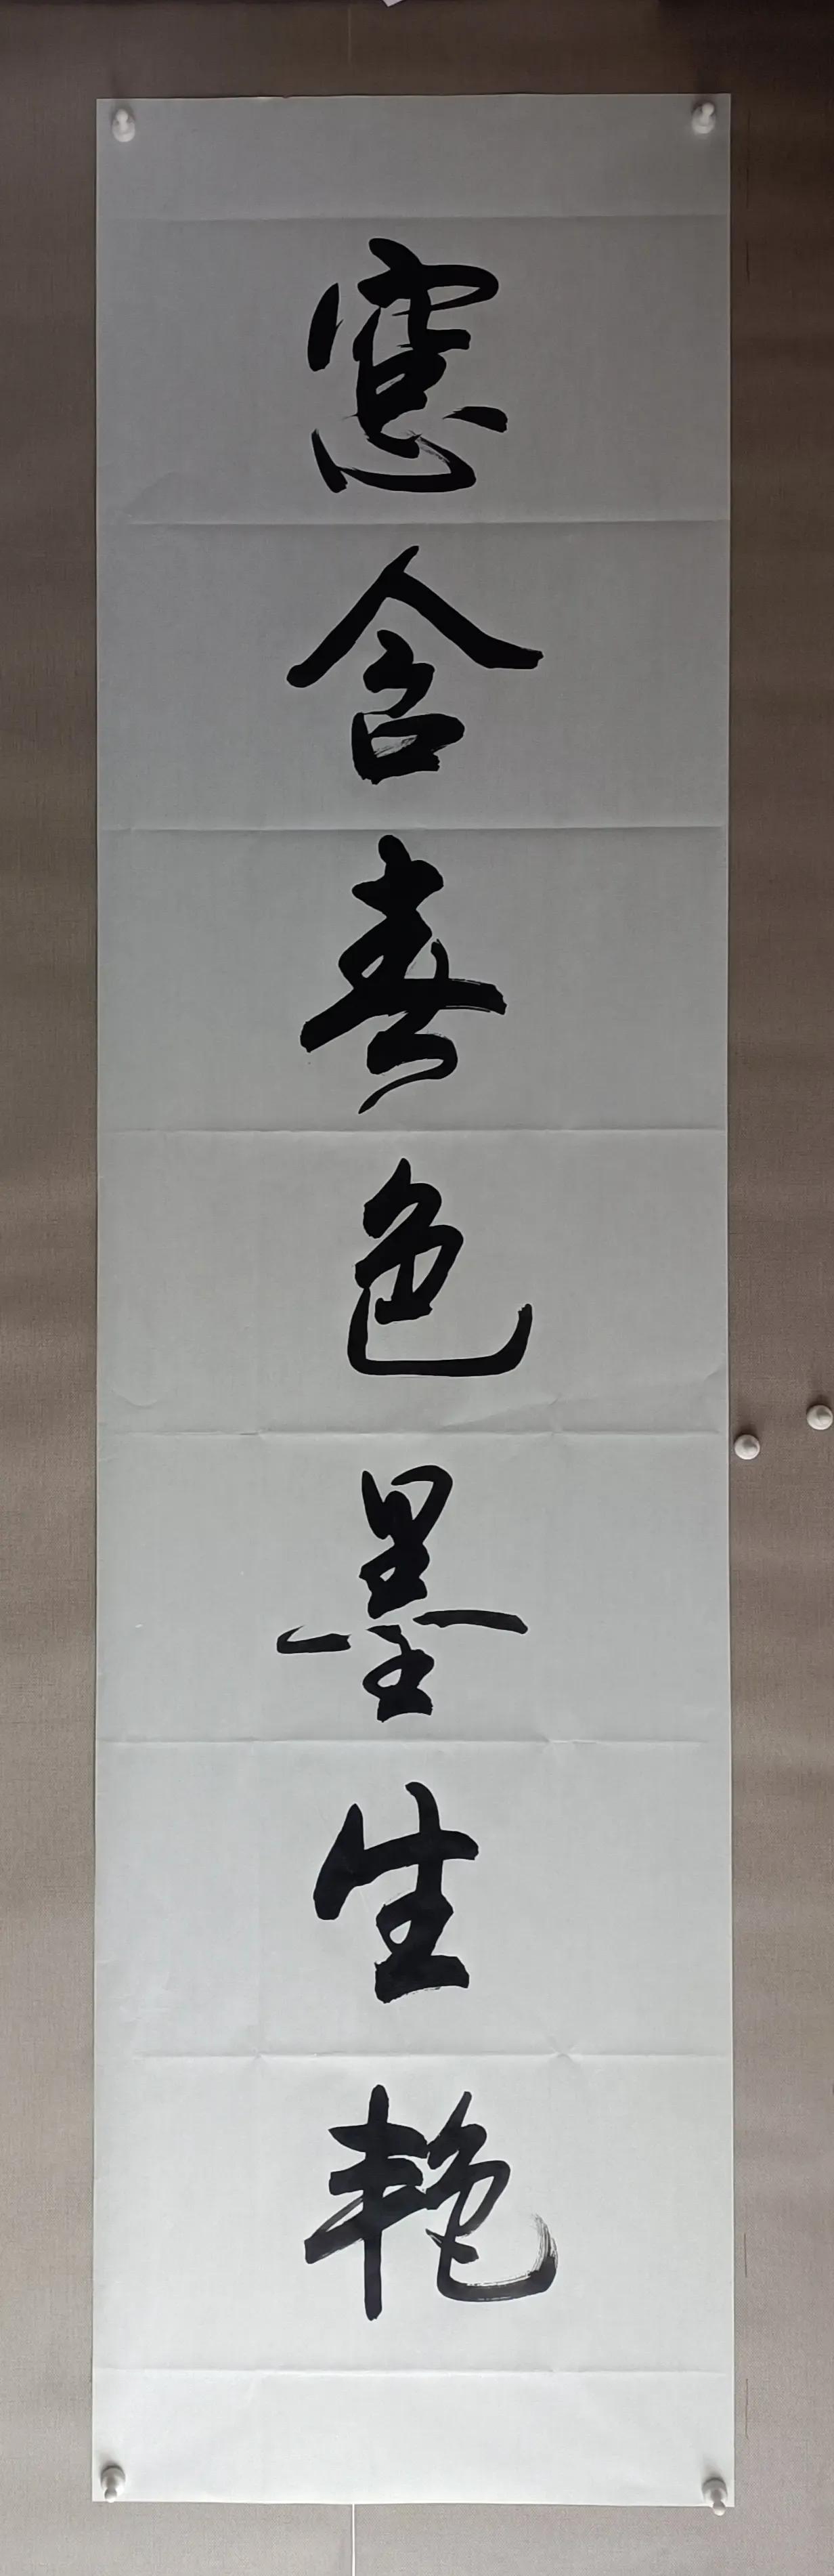 窓含春色墨生艳